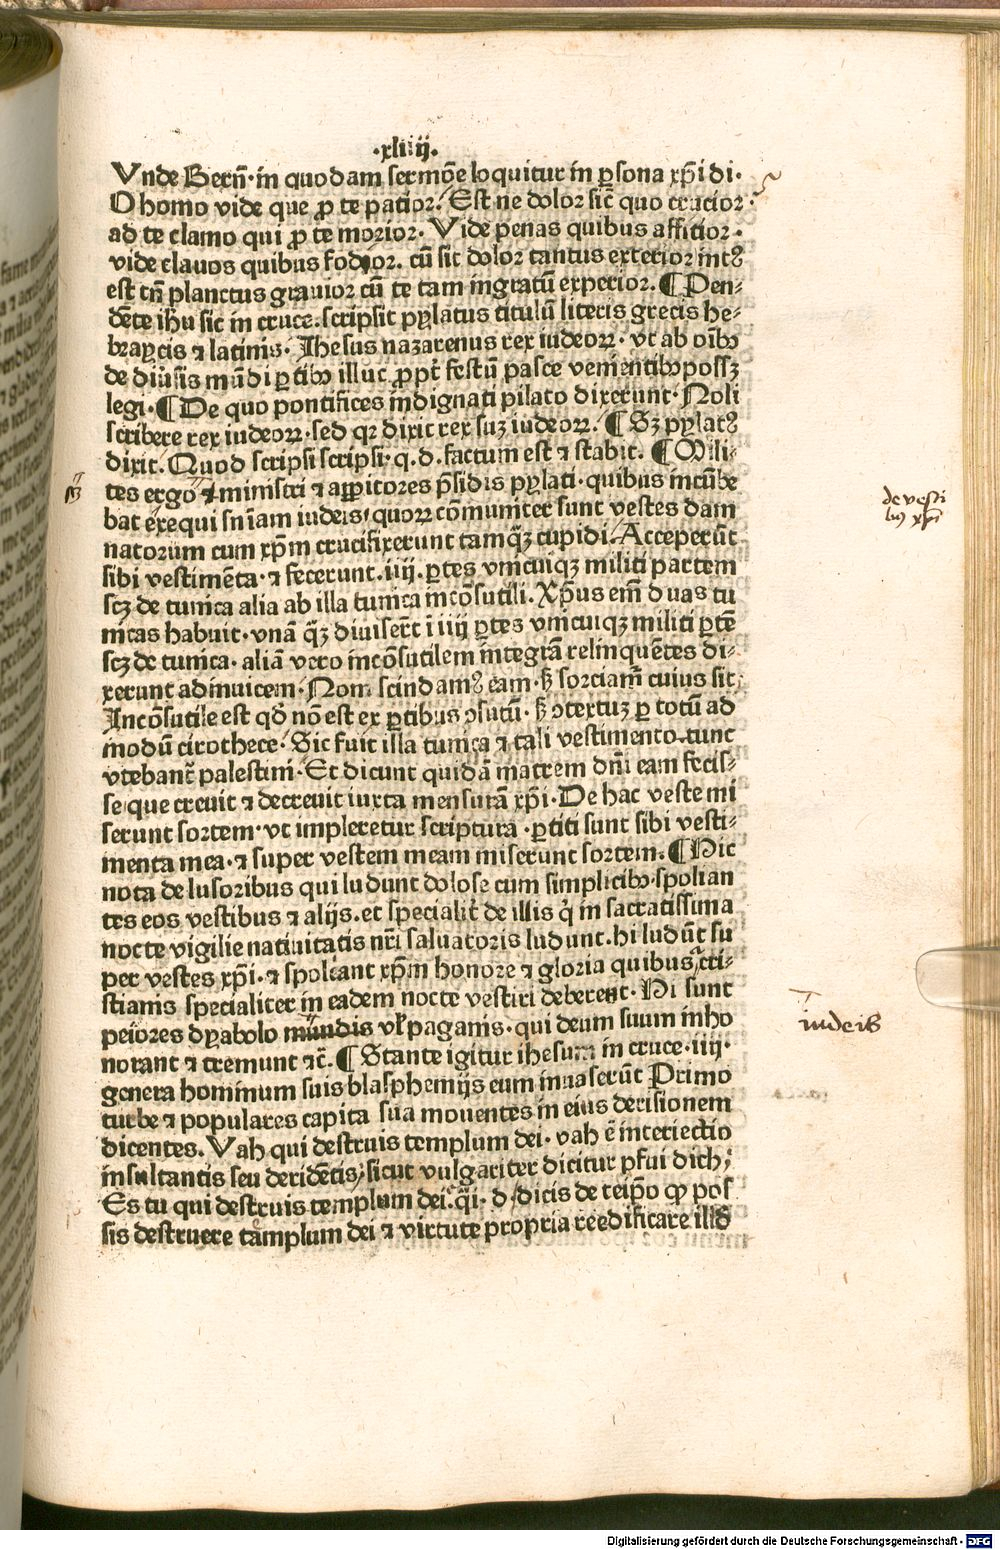 ·xliiij·
Vnde Bern̄·in quodam sermōe loquitur in ꝑsona xp̄i di·
O homo vide que ꝓ te patior/ Est ne dolor sic̄ quo crucior·
ad te clamo qui ꝓ te morior· Vide penas quibus afficior·
vide clauos quibus fodior. cū sit dolor tantus exterior intꝰ
est tn̄ planctus grauior cū te tam ingratū experior.¶Pen⸗
dēte ihū sic in cruce.scripsit pylatus titulū literis grecis he⸗
braycis ⁊ latinis· Ihesus nazarenus rex iudeoꝝ·vt ab oībꝰ
de diūsis mūdi ꝑtibꝰ illuc ꝓpt̄ festū pasce venientibꝰ possꝫ
legi·¶De quo pontifices indignati pilato dixerunt·Noli
scribere rex iudeoꝝ·sed qꝛ dixit rex suꝫ iudeoꝝ.¶Sꝫ pylatꝰ
dixit/Quod scripsi scripsi·q.d.factum est ⁊ stabit.¶Mili⸗
tes ergo ⁊ ministri ⁊ apꝑitores p̄sidis pylati·quibus incūbe
bat exequi sn̄iam iudeis/quoꝝ cōmuniter sunt vestes dam
natorum cum xp̄m crucifixerunt tamqꝫ cupidi/Acceperūt
sibi vestimēta·⁊ fecerunt.iiij.ꝑtes vnicuiqꝫ militi partem
scꝫ de tunica alia ab illa tunica incōsutili.Xp̄us em̄ duas tu
nicas habuit·vnā qꝫ diuiserūt ī iiij ꝑtes vnicuiqꝫ militi ꝑtē
scꝫ de tunica·aliā vero incōsutilem integrā relinquētes di⸗
xerunt adinuicem·Non scindamꝰ eam·sꝫ sorciam̄ cuius sit
Incōsutile est qd̄ nō est ex ꝑtibus ꝯsutū·sꝫ ꝯtextuꝫ ꝑ totū ad
modū cirothece·Sic fuit illa tunica ⁊ tali vestimento tunc
vtebant̄ palestini·Et dicunt quidā matrem dn̄i eam fecis⸗
se que creuit ⁊ decreuit iuxta mensurā xp̄i·De hac veste mi
serunt sortem·vt impleretur scriptura·ꝑtiti sunt sibi vesti⸗
menta mea·⁊ super vestem meam miserunt sortem.¶Hic
nota de lusoribus qui ludunt dolose cum simplicibꝰ·spolian
tes eos vestibus ⁊ alijs.et specialit̄ de illis q̇ in sacratissima
nocte vigilie natiuitatis nr̄i saluatoris ludunt.hi ludūt su
per vestes xp̄i.⁊ spoliant xp̄m honore ⁊ gloria quibus cri⸗
stianis specialiter in eadem nocte vestiri deberent·Hi sunt
peiores dyabolo mundis vl̄ paganis·qui deum suum inho
norant ⁊ tremunt ⁊c̄.¶Stante igitur ihesum in cruce·iiij·
genera hominum suis blasphemijs eum inuaserūt Primo
turbe ⁊ populares capita sua mouentes in eius derisionem
dicentes.Vah qui destruis templum dei·vah ē interiectio
insultantis seu deridētis/sicut vulgariter dicitur pfui dich/
Es tu qui destruis templum dei.q̄i·d·dicis de teip̄o ꝙ pos
sis destruere tamplum dei ⁊ virtute propria reedificare illđ
de vesti
bꝰ xp̄i
iudeis
Digitalisierung gefördert durch die Deutsche Forschungsgemeinschaft - DFG